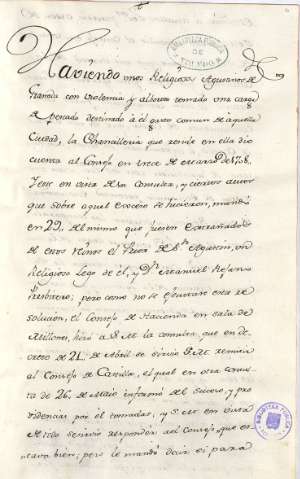 Haviendo unos Religiosos Agustinos de
Granada con violencia y alboroto tomado una carga
de pescado destinado à el gasto comun de aquella
Ciudad, la Chancilleria que reside en ella dio
cuenta al Consejo en trece de Marzo de
que en vista de la Consulta, y autos
que sobre aquel exceso se hicieron, mandó
en 29. del mismo que fuesen extrañados
de estos Reinos el Prior de Sn Agustin, un
Religioso Lego de él, y Dn Manuel
Presbitero; pero como no se executase esta re-
solucion, el Consejo de Hacienda en Sala de
Millones, hizo à S.M. la consulta, que en de-
creto de 21. de Abril se sirvió S.M. remitir
al Consejo de Castilla, el qual en otra consul-
ta de 26. de Maio informó del suceso, y pro-
videncias por él tomadas; y S.M. en vista
de todo se sirvió responder al Consejo, que es-
tava bien; pero le mandó decir si para
BIBLIOTECA
DE